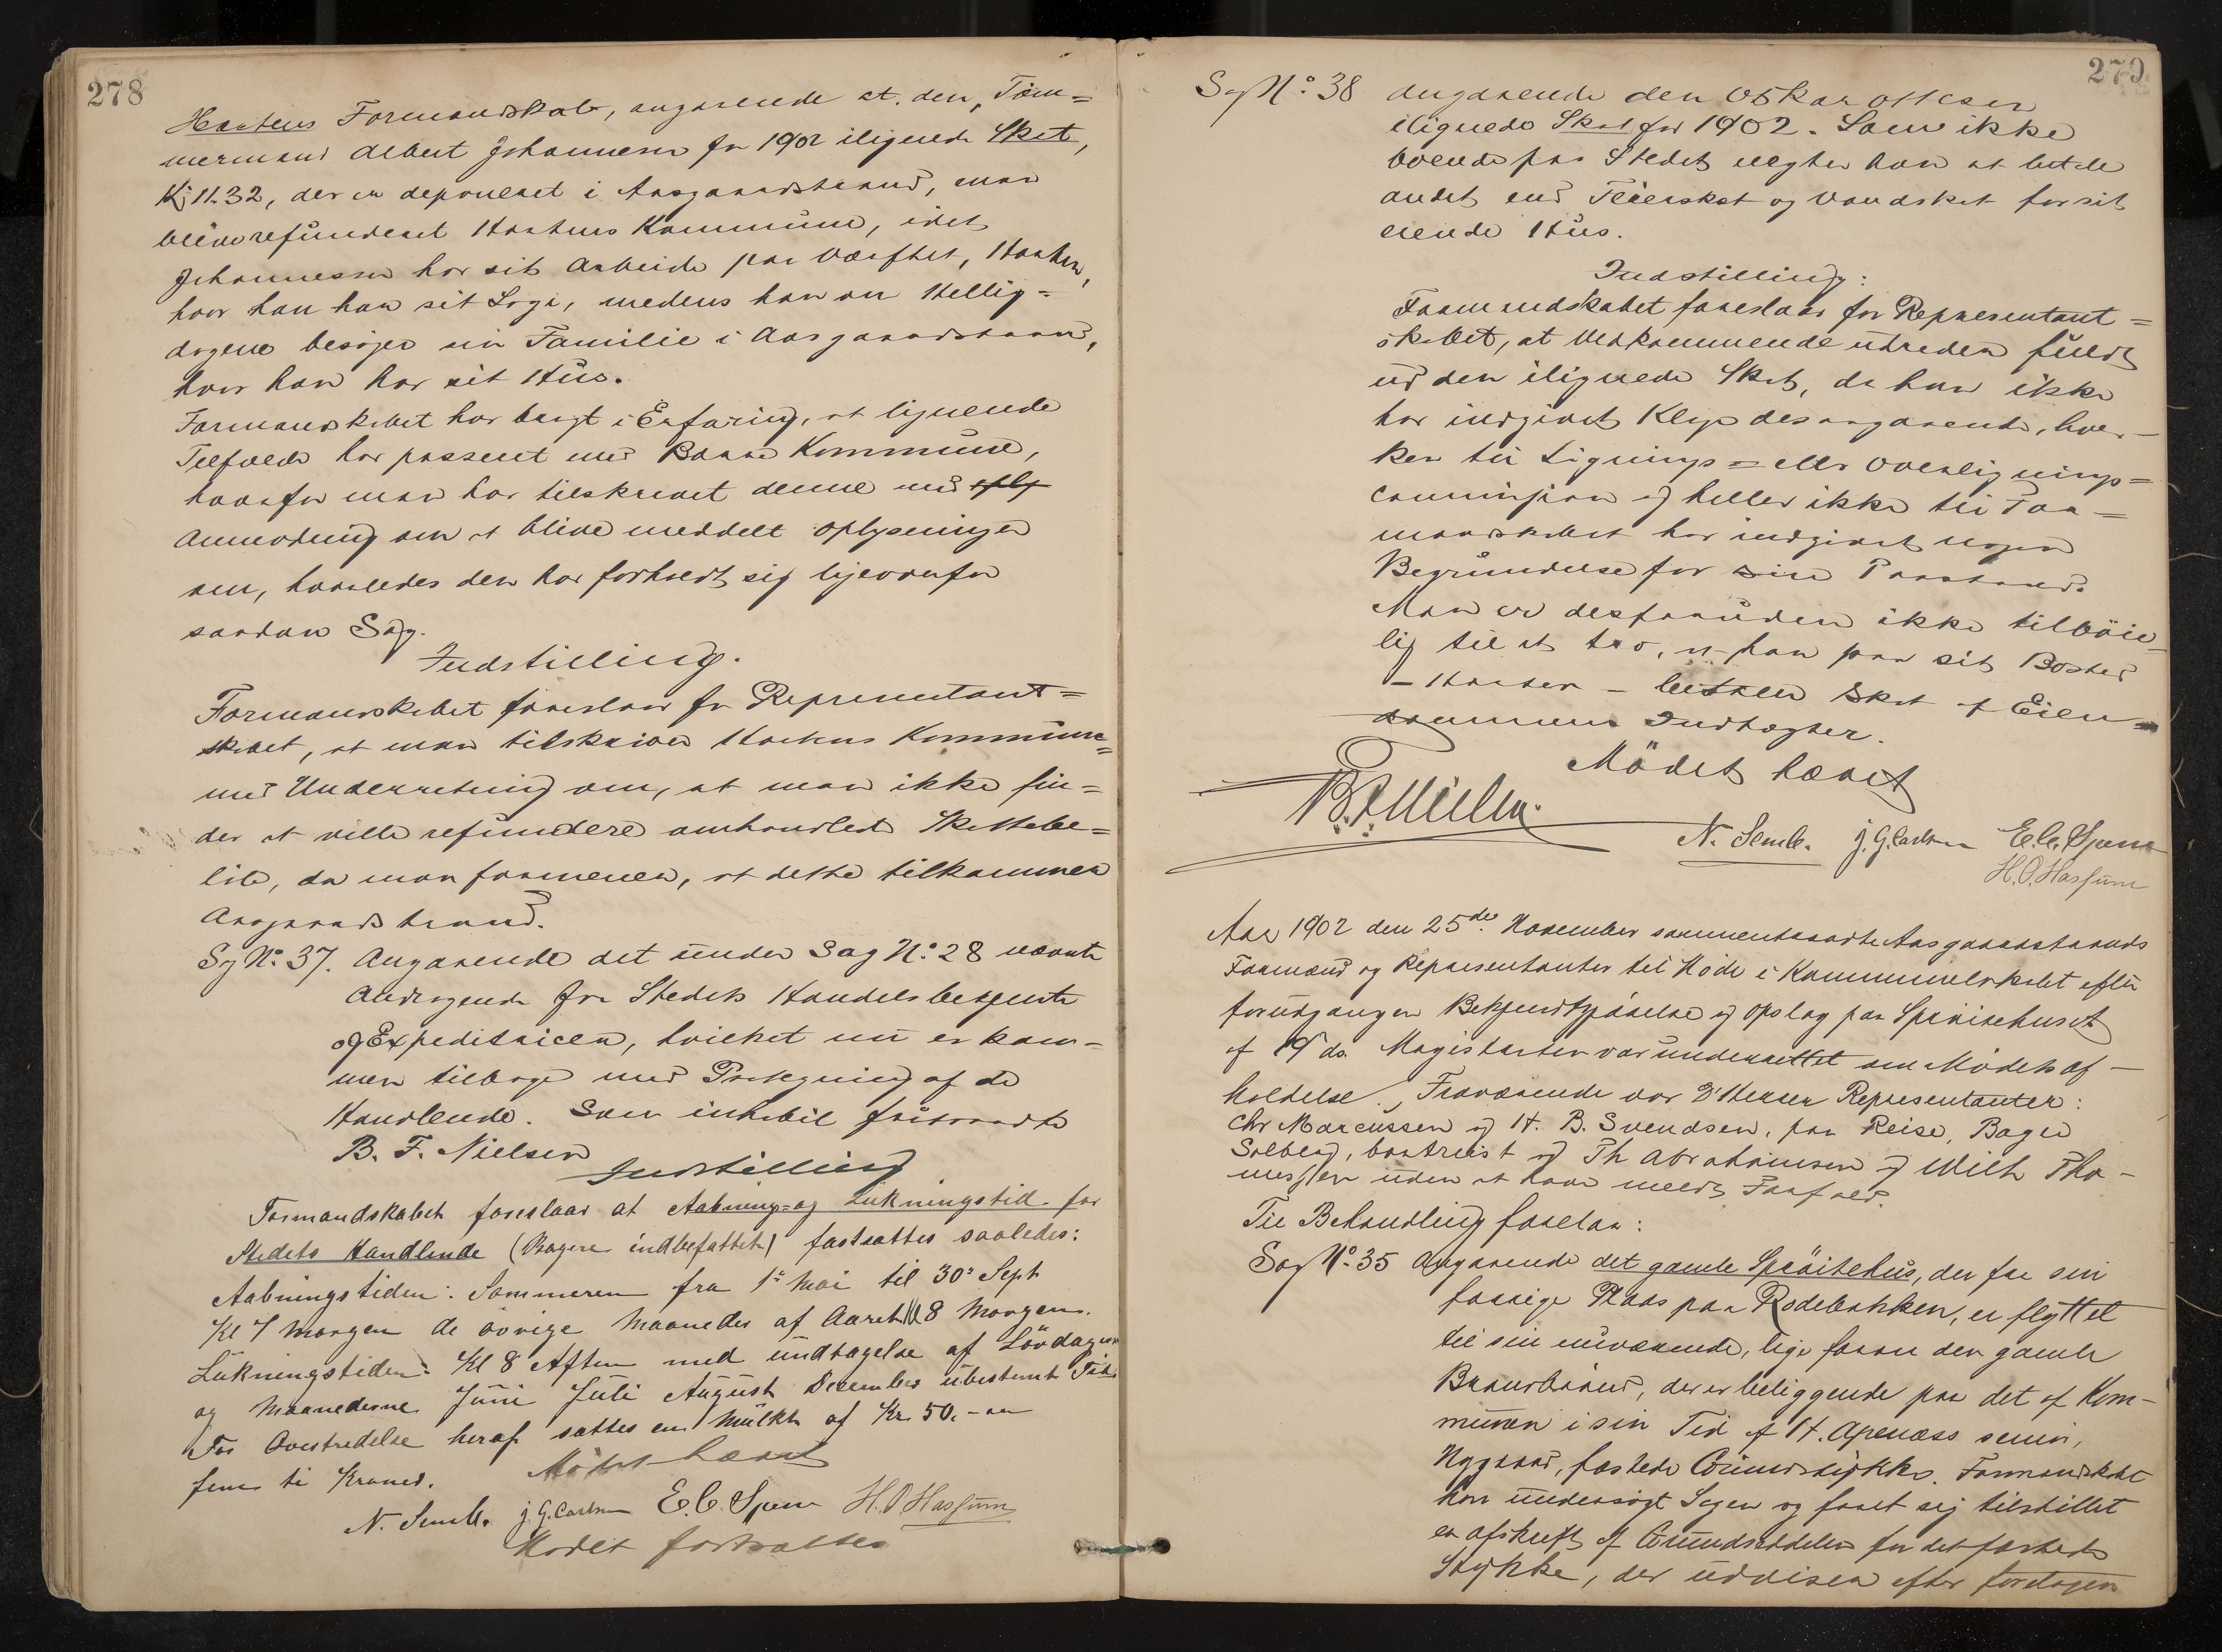 278
Hortens Formandskab, angaaende at den, Töm=
mermand Albert Johannesen for 1902 ilignede Skat,
Kr 11.32, der er deponeret i Aasgaardstrand, maa
blive refunderet Hortens Kommune, idet
Johannesen har sit Arbeide paa Værftet, Horten,
hvor han har sit Logi, medens han om Hellig=
dagene besøger sin Familie i Aasgaardstrand,
hvor han har sit Hus.
Formandskabet har bragt i Erfaring, at lignende
Tilfælde har passeret med Borre Kommune,
hvorfor man har tilskrevet denne med
Anmodning om at blive meddelt Oplysninger
om, hvorledes den har forholdt sig ligeoverfor
saadan Sag.
Indstilling.
Formandskabet foreslaar for Representant=
skabet, at man tilskriver Hortens Kommune=
med Underretning om, at man ikke fin=
der at ville refundere omhandlede Skattebe=
löb, da man formener, at dette tilkommer
Aasgaardstrand.
Sag No. 37. Angaaende det under Sag No. 28 nævnte
Andragende fra Stedets Handelsbetjente
og Expeditricer, hvilket nu er kom-
men tilbage med Paategning af de
Handlende. Som inhabil fratraadte
B. F. Nielsen
Indstilling
Formandskabet foreslaar at Aabnings= og Lukningstid for
Stedets Handlende (Bagere indbefattet) fastsættes saaledes:
Aabningstiden: Sommeren fra 1ste Mai til 30te Sept
Kl 7 Morgen de övrige Maaneder af Aaret Kl 8 Morgen.
Lukningstiden: Kl 8 Aften med undtagelse af Lördagen
og Maanederne Juni Juli August December ubestemt Tid.
For Overtredelse heraf sættes en Mulkt af Kr. 50.-
femti Kroner. Mödet hævet
N. Semb. J. G. Carlsen E. C. Spem H. O. Hassum
Mödet fortsættes
279
Sag No. 38 angaaende den Oskar Ottesen
ilignede Skat for 1902. Som ikke
boende paa Stedet negter han at betale
andet end Feierskat og Vandskat for sit
eiende Hus.
Indstilling:
Formandskabet foreslaar for Representant=
skabet, at Vedkommende utreder fuldt
ud den ilignede Skat, da han ikke
har indgivet Klage desangaaende, hver-
ken til Lignings= eller Overlignings=
commission og heller ikke til For=
mandskabet har indgivet nogen
Begrundelse for sin Paastand.
Man er desforuden ikke tilböie=
lig til at tro, at han paa sit Bosted
- Horten - betaler Skat af Eien=
dommens Indtægter.
Mödet hævet
B. F. Nielsen.
N. Semb. J. G. Carlsen E. C. Spem
H. O. Hassum
Aar 1902 den 25de November sammentraadte Aasgaardstrands
Formænd og Repræsentanter til Möde i Kommunelokalet efter
forudgangen Bekjendtgjörelse og Opslag paa Spröitehuset
af 19 ds. Magistraten var underrettet om Mödets af-
holdelse. Fraværende var D'Herrer Representanter:
Chr Marcussen og H. B. Svendsen, paa Reise, Bager
Solberg, bortreist og Th Abrahamsen og Wilh Tho-
messen uden at have meldt Forfald.
Til Behandling forelaa:
Sag No. 35 Angaaende det gamle Spröitehus, der fra sin
forrige Plads paa Rodebakken, er flyttet
til sin nuværende, lige foran den gamle
Brandbrönd, der er beliggende paa det af Kom-
munen i sin Tid af H. Apenæss senior,
Nygaard, fæstede Grundstykke. Formandskabet
har undersögt Sagen og faaet sig tilstillet
en Afskrift af Grundseddelen for det fæstede
Stykke, der udviser efter foretagen